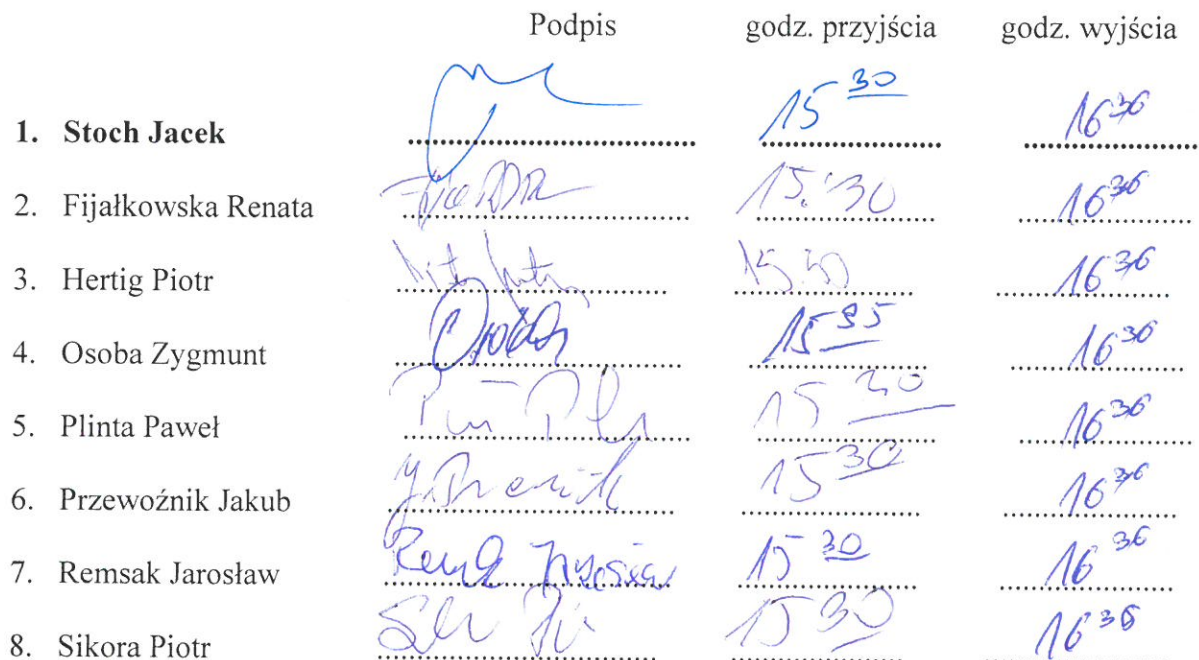 Podpis godz. przyjścia godz. wyjścia
1. Stoch Jacek 15 30 16 36
2. Fijałkowska Renata 15:30 16 36
3. Hertig Piotr 15.30 16 36
4. Osoba Zygmunt 15 35 16 36
5. Plinta Paweł 15 30 16 36
6. Przewoźnik Jakub 15 30 16 36
7. Remsak Jarosław 15 30 16 36
8. Sikora Piotr 15 30 16 36